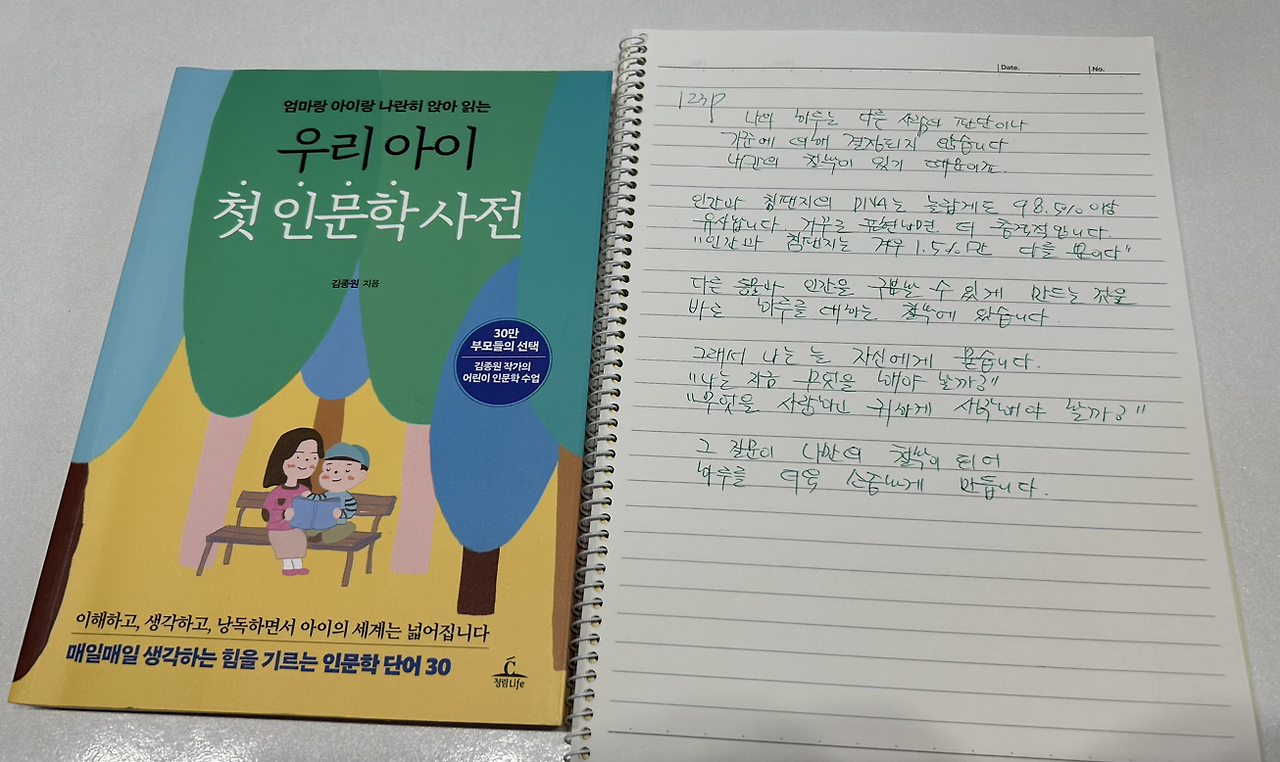 엄마랑 아이랑 나란히 앉아 읽는
우리 아이
첫 인문학 사전
김종원 지음
30만
부모들의 선택
김종원 작가의
어린이 인문학 수업
이해하고, 생각하고, 낭독하면서 아이의 세계는 넓어집니다
매일매일 생각하는 힘을 기르는 인문학 단어 30
청림Life
Date.
No.
123p
나의 하루는 다른 사람의 판단이나
기준에 의해 결정되지 않습니다
나만의 철학이 있기 때문이죠.
인간과 침팬지의 DNA는 놀랍게도 98.5% 이상
유사합니다. 거꾸로 표현하면 더 충격적입니다.
"인간과 침팬지는 겨우 1.5%만 다를 뿐이다"
다른 동물과 인간을 구분할 수 있게 만드는 것은
바로 하루를 대하는 철학에 있습니다.
그래서 나는 늘 자신에게 묻습니다.
"나는 지금 무엇을 해야 할까?"
"무엇을 사랑하고 귀하게 생각해야 할까?"
그 질문이 나만의 철학이 되어
하루를 더욱 소중하게 만듭니다.